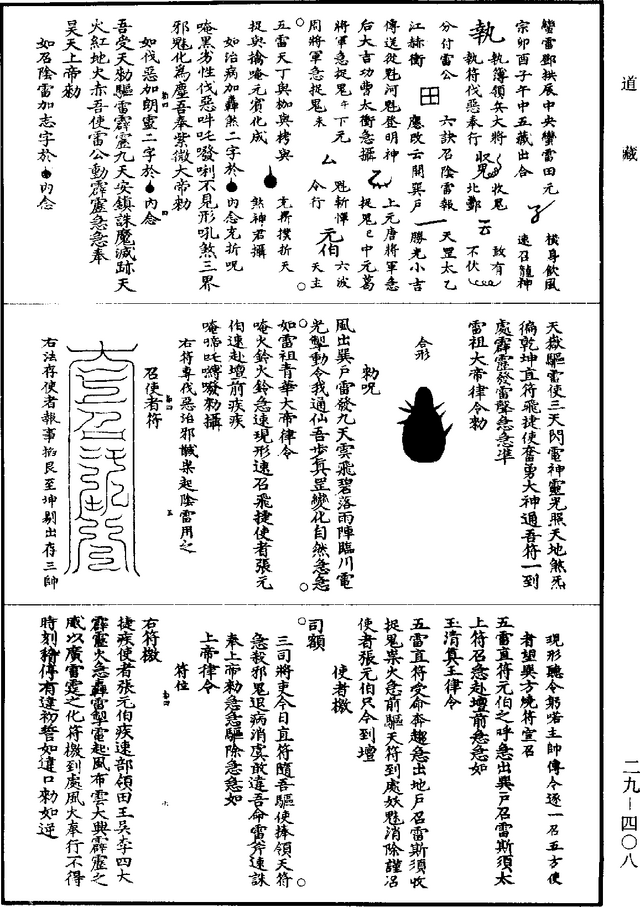 道藏
蠻雷鄧拱辰中央蠻雷田元
宗卯酉子午中五藏出合
橫身飲風
速召龍神
執
執簿領兵大將
執符伐惡奉行
收鬼
北酆
云
致有
不伏
分付雷公
六訣召陰雷報
天罡太乙
江赫衝
田
應攺云開巽戶
一
勝光小吉
傳送從魁河魁登明神
上元唐將軍急
后大吉功曹太衝急攝
捉鬼巳中元葛
將軍急捉鬼午下元
魁斬憚
元伯
六波
周將軍急捉鬼未
厶
令行
天主
五雷天丁與枷與拷與
充昇撲折天
捉與擒唵元賓化成
煞神君攝
如治病加轟煞二字於
內念充折呪
唵黑雰性伐惡吽吒㗶唎不見形吼煞三界
邪魁化為塵吾奉紫微大帝勑
如伐惡加朗靈二字於
內念
吾受天勑驅雷霹靂九天安鎮誅魔滅跡天
火紅地火赤吾使雷公動霹靂急急奉
昊天上帝勑
如召陰雷加志字於
內念
天嶽驅雷使三天閃電神靈光照天地煞炁
徧乾坤直符飛捷使奮勇大神通吾符一到
處霹靂發雷聲急急準
雷祖大帝律令勑
合形
勑呪
風出巽戶雷發九天雲飛碧落雨陣臨川電
光掣動令我通仙吾步真罡變化自然急急
如雷祖青華大帝律令
唵火鈴火鈴急速現形速召飛捷使者張元
伯速赴壇前疾疾
唵啼吒嚩㗶勑攝
右符專伐惡治邪瓛祟起陰雷用之
召使者符
右法存使者報事掐艮至坤剔出存三帥
現形聽令躬喏主帥傳令逐一召五方使
者望巽方燒符宣召
五雷直符元伯之呼急出巽戶召雷斯須太
上符召急赴壇前急急如
玉清真王律令
五雷直符受命奔趨急出地戶召雷斯須收
捉鬼祟火急前驅天符到處妖魁消除謹召
使者張元伯只今到壇
使者檄
司額
三司將吏今日直符隨吾驅使捧領天符
急殺邪鬼退病消虞敢違吾命雷斧速誅
奉上帝勑急急驅除急急如
上帝律令
符位
右符檄
捷疾使者張元伯疾速部領田王吳李四大
霹靂火急轟雷掣電起風布雲大興霹靂之
威以廣雷霆之化符檄到處風火奉行不得
時刻稽停有違初誓如違口勑如逆
二九—四〇八